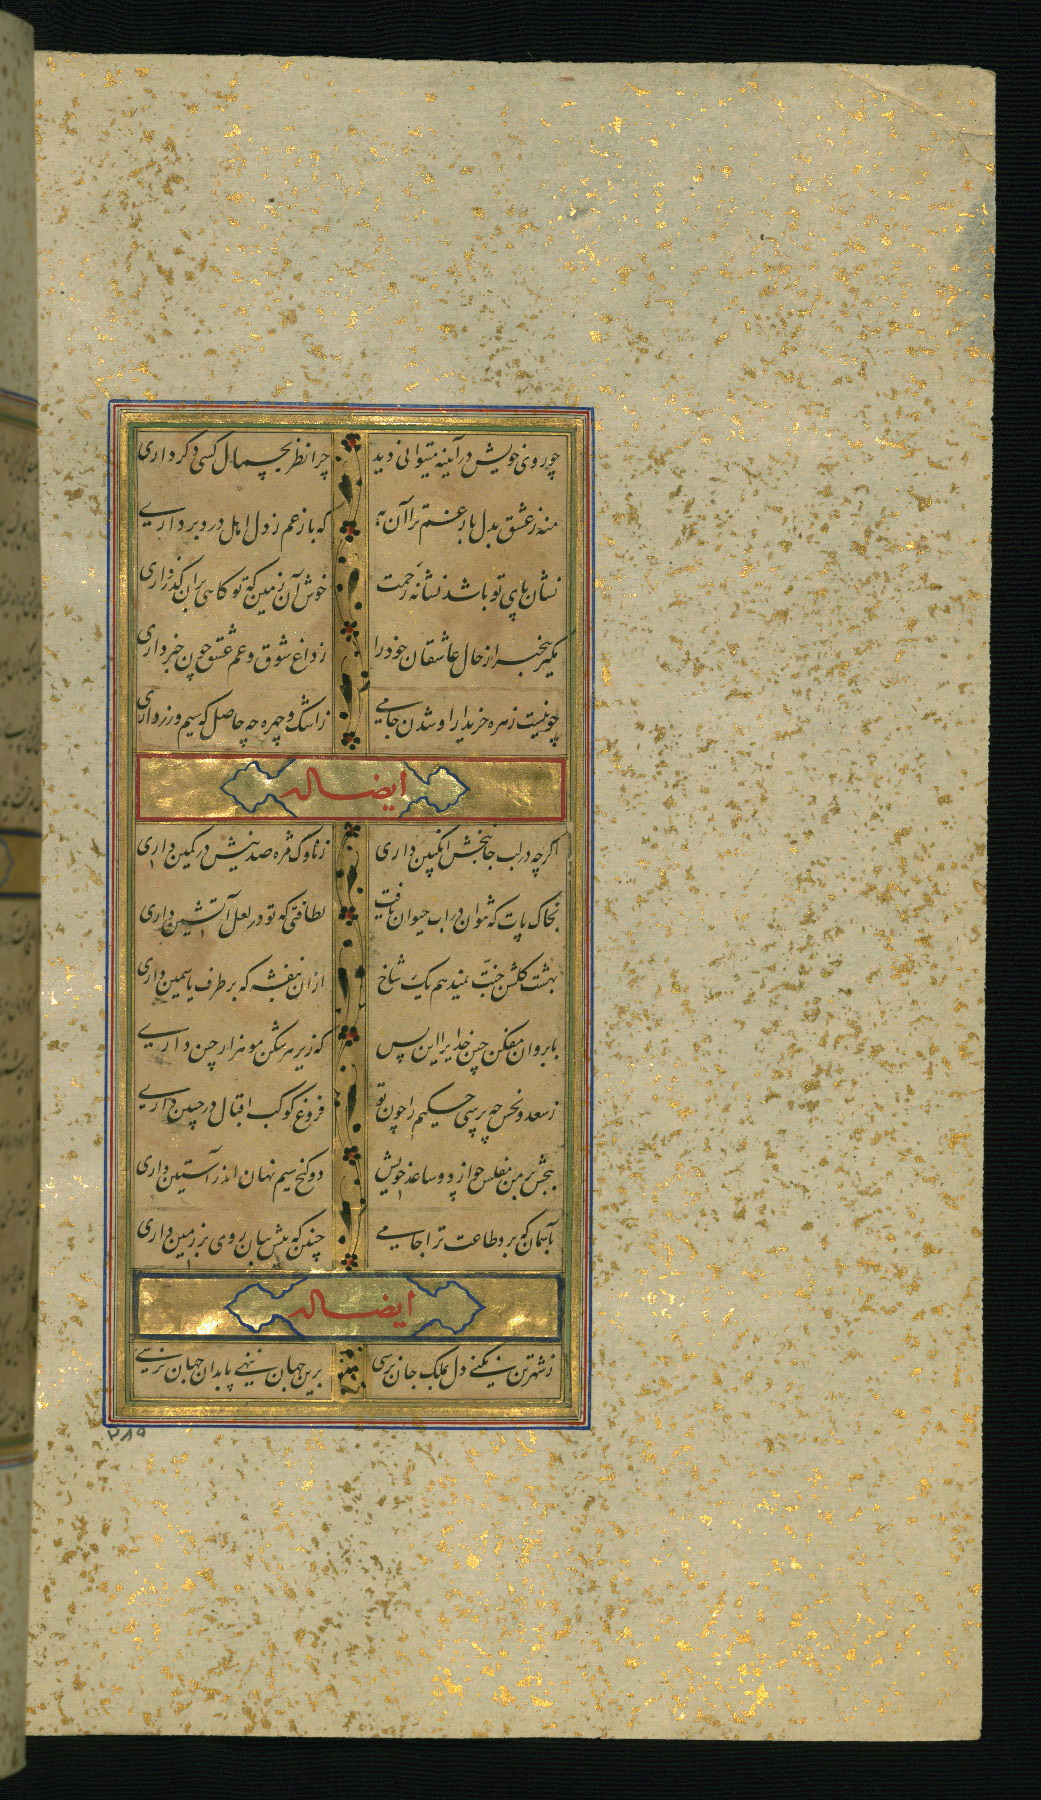 چو روی خویش در آینه میتوانی دید چرا نظر بجمال کسی دگر داری
منه ز عشق بدل بار غم ترا آن به که بار غم ز دل اهل درد برداری
نشان پای تو باشد نشانه رحمت خوش آن زمین که تو کاهی بران گذر داری
مگیر بیخبر از حال عاشقان خود را ز داغ شوق و غم عشق چون خبر داری
چو نیست زهره خریدار او شدن جامی ز اشک و چهره چه حاصل که سیم و زر داری
ایضا له
اگر چه در لب جانبخش انگبین داری ز ناوک مژه صد نیش در کمین داری
بخاک پات که نتوان در اب حیوان یافت لطافتی که تو در لعل آتشین داری
بهشت کلشن جنت نمیدهم یک شاخ ازان بنفشه که بر طرف یاسمین داری
بابروان مفکن چین خدایرا این بس که زیر هر شکن مو هزار چین داری
ز سعد و نحس چه پرسی حکیم را چون تو فروغ کوکب اقبال در جبین داری
ببخش بر من مفلس جو از دو ساعد خویش دو کنج سیم نهان اندر آستین داری
بآسمان که برد طاعت ترا جامی چنین که پیش بتان روی بر زمین داری
ایضا له
ز شهر تن نکنی دل بملک جان نرسی برین جهان ننهی پا بدان جهان نرسی
۲۸۹